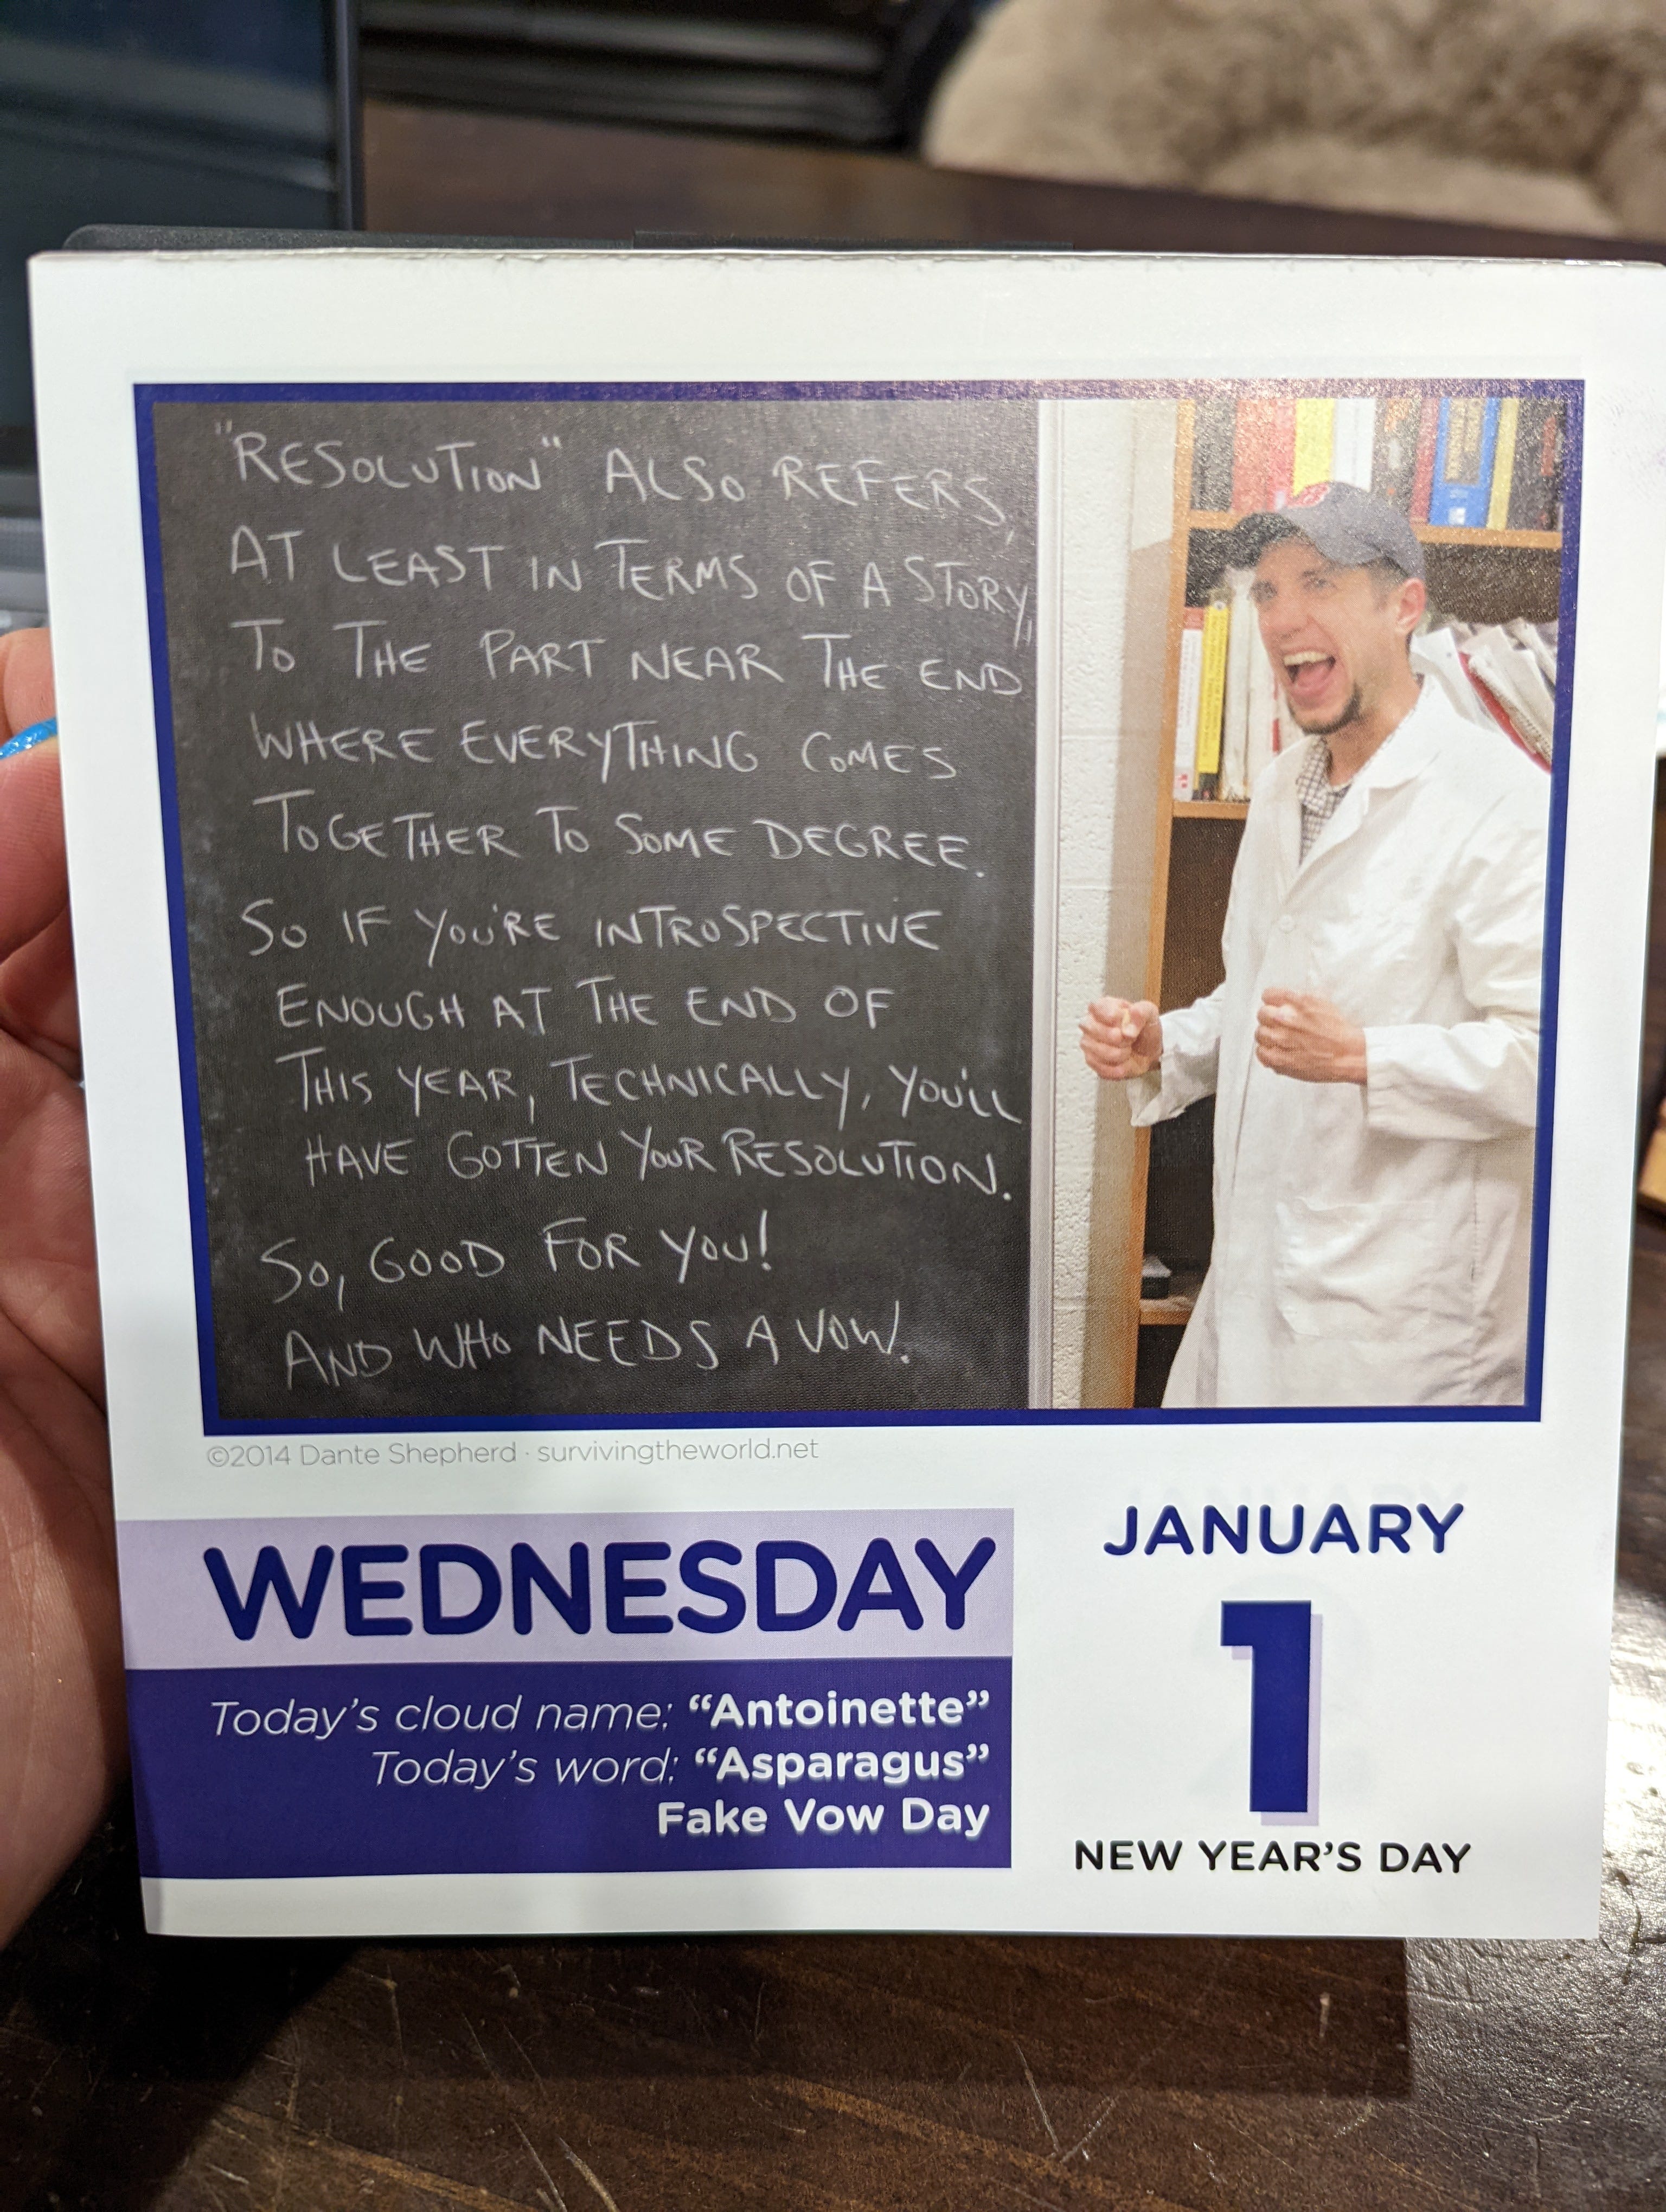 "RESOLUTION" ALSO REFERS,
AT LEAST IN TERMS OF A STORY,
TO THE PART NEAR THE END
WHERE EVERYTHING COMES
TOGETHER TO SOME DEGREE.
SO IF YOU'RE INTROSPECTIVE
ENOUGH AT THE END OF
THIS YEAR, TECHNICALLY, YOU'LL
HAVE GOTTEN YOUR RESOLUTION.
SO, GOOD FOR YOU!
AND WHO NEEDS A VOW.
©2014 Dante Shepherd · survivingtheworld.net
WEDNESDAY
Today's cloud name: “Antoinette”
Today's word: “Asparagus”
Fake Vow Day
JANUARY
1
NEW YEAR'S DAY